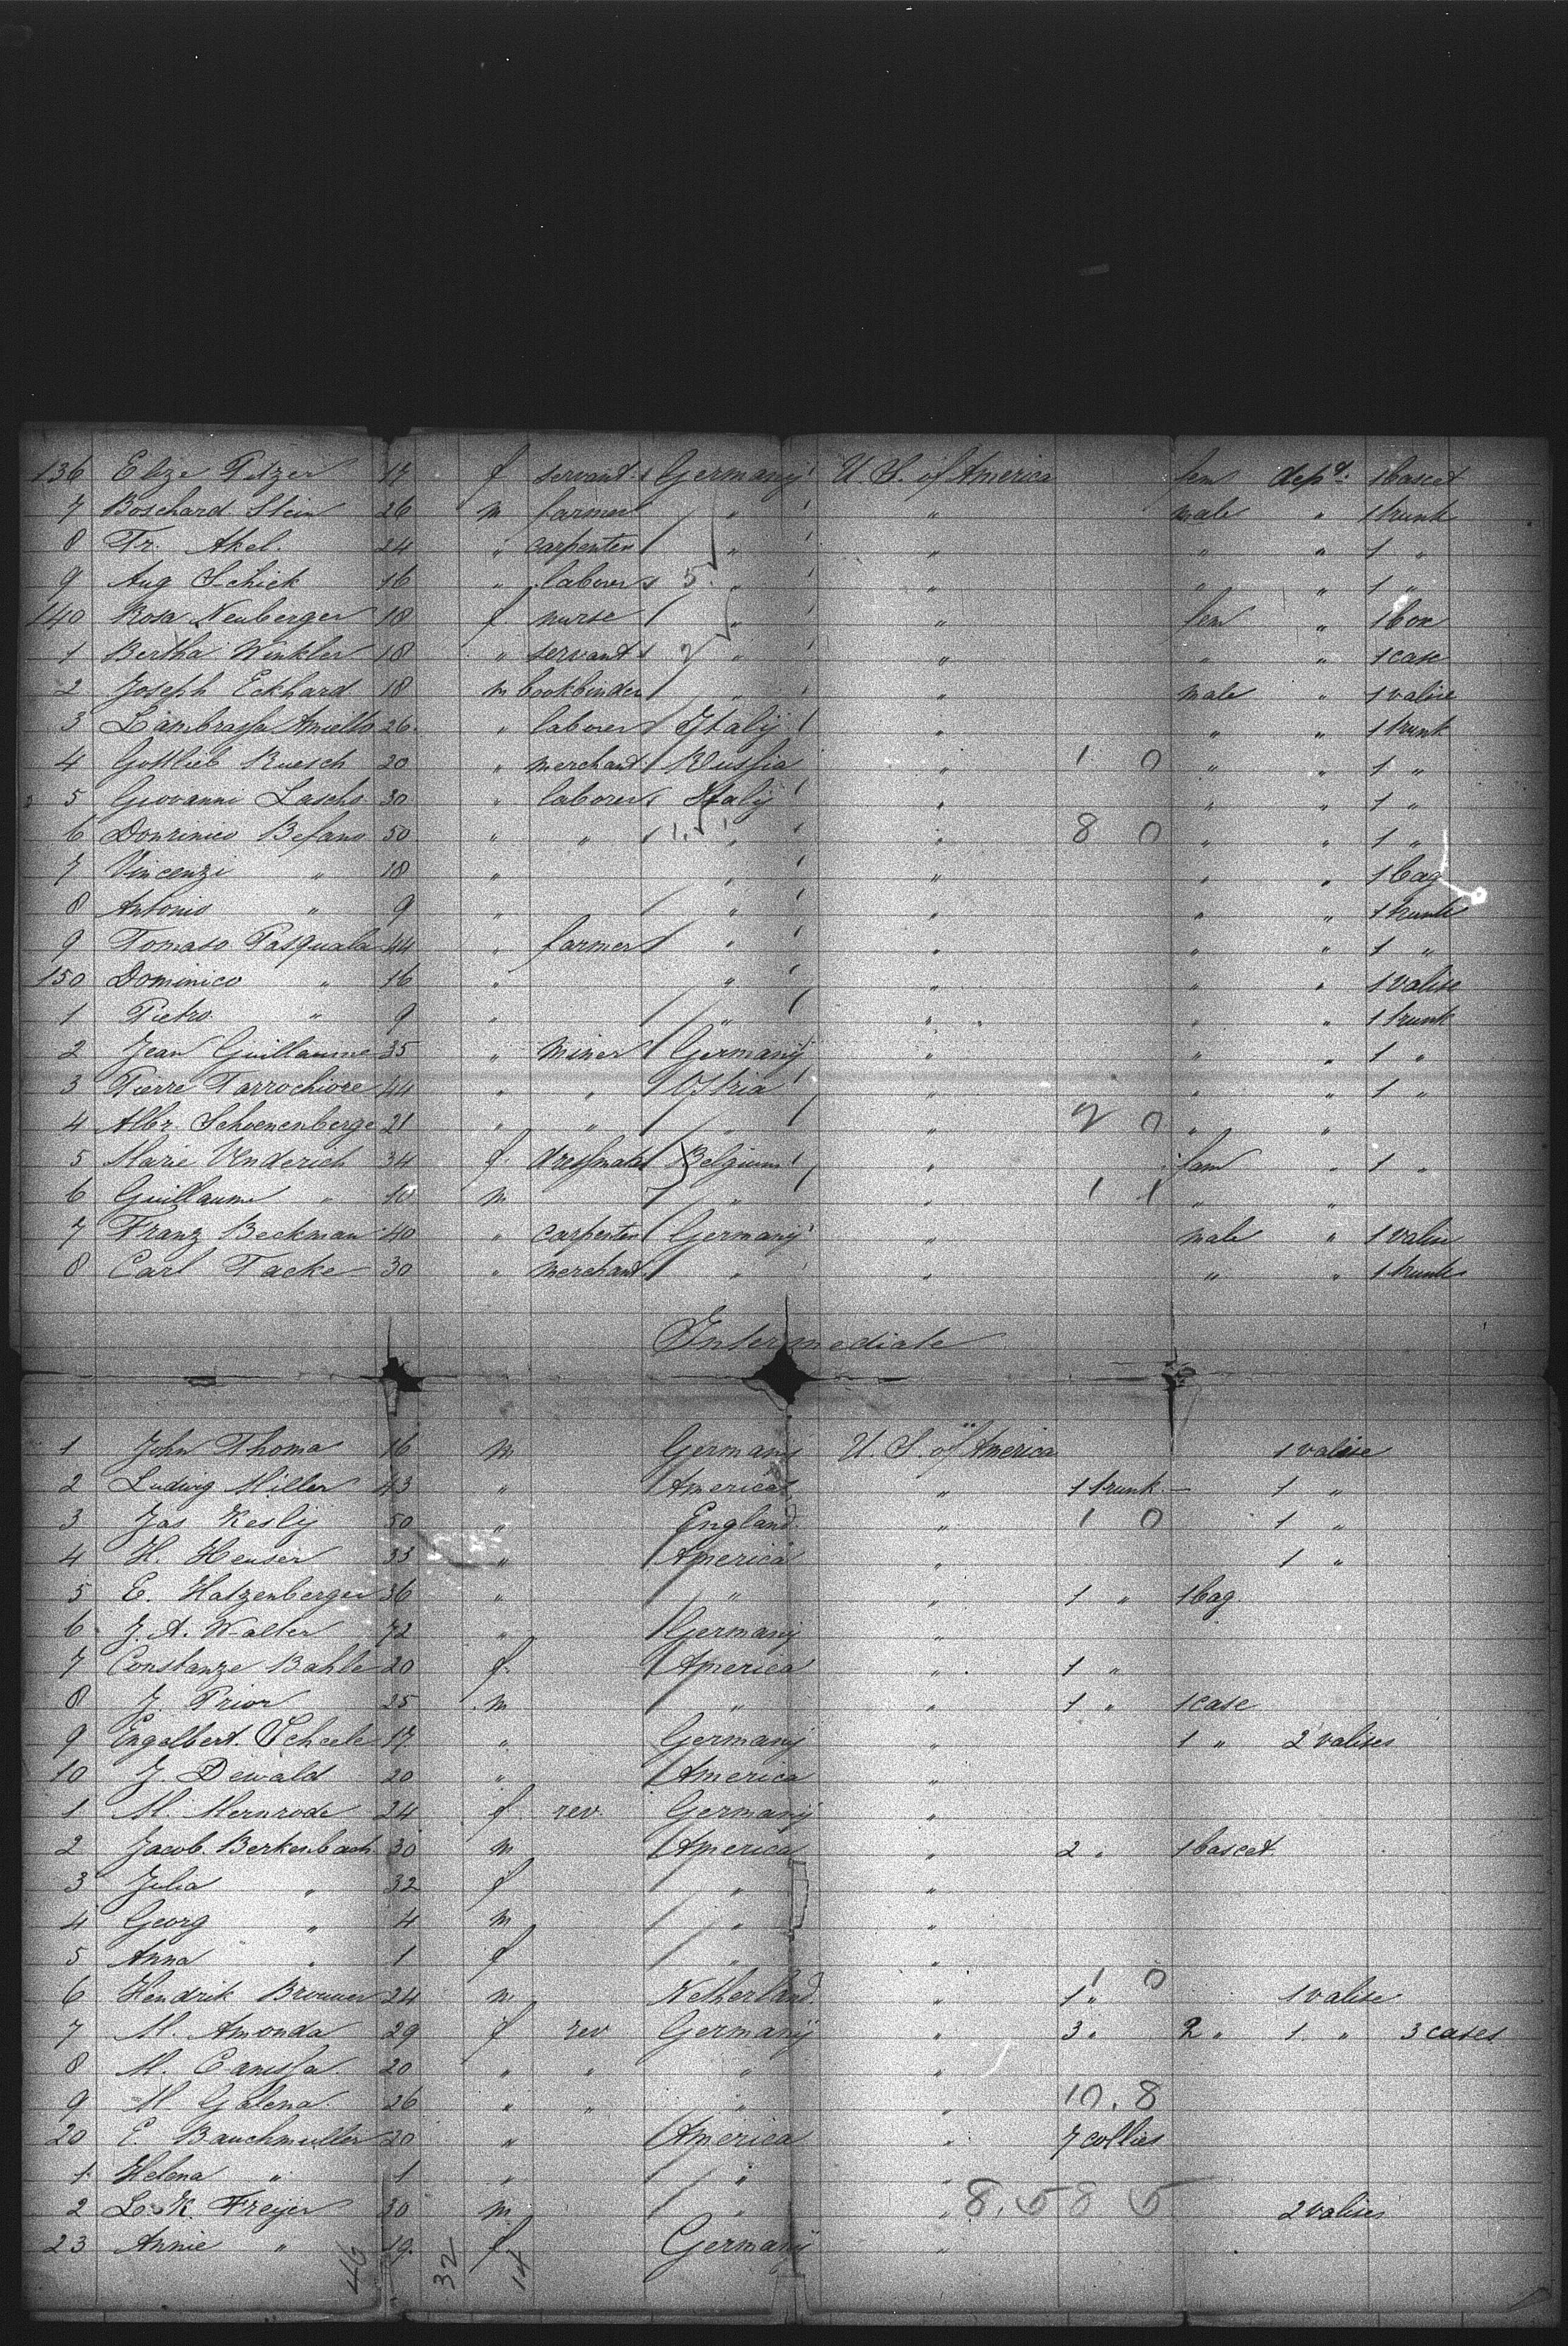 136 Elize Pitzer 17 f servant Germany U. S. of America fem dept. 1 bascet
7 Boschard Stein 26 m farmer " " male " 1 trunk
8 Fr. Akel. 24 " carpenter " " " " 1 "
9 Aug Schick 16 " laborer 5 " " " " 1 "
140 Rosa Neuberger 18 f nurse " " fem " 1 box
1 Bertha Winkler 18 " servant 2 " " " " 1 case
2 Joseph Eckhard 18 m bookbinder " " male " 1 valise
3 Aniello 26 " laborer Italy " " " 1 trunk
4 Gottlieb Ruesch 20 " merchant Russia " 1 0 " " 1 "
5 Giovanni Lascho 30 " laborer Italy " " " 1 "
6 Dominico Befano 50 " " " " 8 0 " " 1 "
7 Vincenzi " 18 " " " " " 1 bag
8 Antonio " 9 " " " " " 1 trunk
9 Tomaso Pasquala 44 " farmer " " " " 1 "
150 Dominico " 16 " " " " " 1 valise
1 Pietro " 9 " " " " " 1 trunk
2 Jean Guillaume 35 " miner Germany " " " 1 "
3 Pierre Tarrochiore 44 " " Ostria " " " 1 "
4 Albr. Schoenenberge 21 " " " " 2 0 " "
5 Marie Underich 34 f dressmaker Belgium " fem " 1 "
6 Guillaume " 10 m " " 1 1 " "
7 Franz Beckman 40 " carpenter Germany " male " 1 valise
8 Carl Tacke 30 " merchant " " " " 1 trunk
Intermediate
1 John Thoma 16 m Germany U. S. of America 1 valise
2 Ludwig Miller 43 " America " 1 trunk — 1 "
3 Jas Kesly 50 " England " 1 0 1 "
4 H. Heuser 33 " America " 1 "
5 E. Hatzenberger 36 " " " 1 " 1 bag
6 J. A. Walter 72 " Germany "
7 Constanze Bahle 20 f. America " 1 "
8 J. Prior 25 m " " 1 " 1 case
9 Engelbert Scheele 17 " Germany " 1 " 2 valises
10 J. Dewald 20 " America "
1 M. Mernrode 24 f rev. Germany "
2 Jacob Berkenbach 30 m America " 2 " 1 bascet
3 Julia " 32 f " "
4 Georg " 4 m " "
5 Anna " 1 f " "
6 Hendrik Brouwer 24 m Netherland. " 1 " 1 0 1 valise
7 M. Amonda 29 f rev Germany " 3 " 2 " 1 " 3 cases
8 M. Canissa 20 " " " "
9 M. Galena 26 " " " " 10.8
20 E. Bauchmuller 20 " America " 7 collies
1 Helena " 1 " " "
2 L. K. Freyer 30 m " " 8.58 5 2 valises
23 Annie " 19 f. Germany "
46 32 14